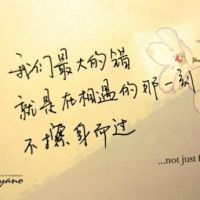 我们最大的错
就是在相遇的那一刻
不擦身而过
...not just f
yano